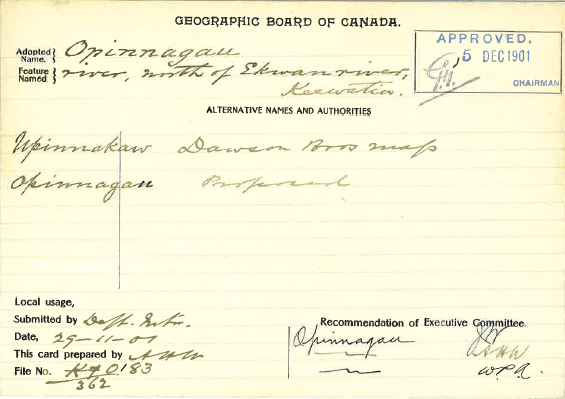 GEOGRAPHIC BOARD OF CANADA.
Adopted Name. Opinnagau
Feature Named river, north of Ekwan river,
Keewatin.
APPROVED.
5 DEC 1901
CHAIRMAN
ALTERNATIVE NAMES AND AUTHORITIES
Upinnakaw Dawson Bros map
Opinnagau Proposed
Local usage,
Submitted by Dept. Intr.
Date, 29-11-01
This card prepared by AHW
File No. 0183
362
Recommendation of Executive Committee.
Opinnagau
AHW
W.P.A.